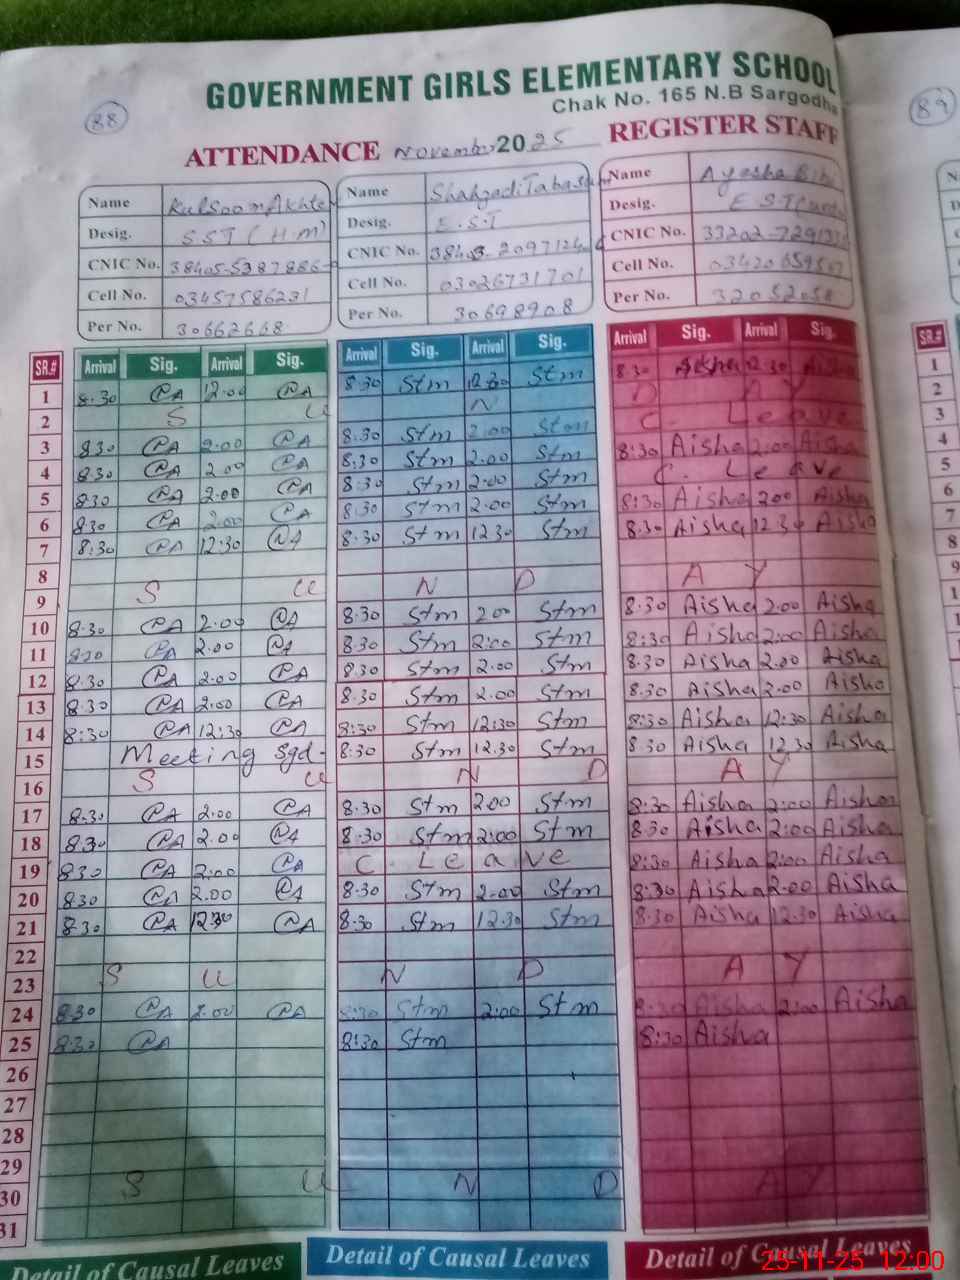 88
89
GOVERNMENT GIRLS ELEMENTARY SCHOOL
Chak No. 165 N.B Sargodha
ATTENDANCE November 2025 REGISTER STAFF
Name Kulsoom Akhter Name Shahzadi Tabasum Name Ayesha Bibi
Desig. SST (H.M) Desig. E.S.T Desig. E.ST
CNIC No. CNIC No. CNIC No.
Cell No. 03457586231 Cell No. 03026731701 Cell No.
Per No. 30662668 Per No. 30698908 Per No. 32052058
SR.# Arrival Sig. Arrival Sig. Arrival Sig. Arrival Sig. Arrival Sig. Arrival Sig. SR.#
1 8:30 12:00 8:30 Stm 12:30 Stm 8:30 Aisha 12:30 Aisha 1
2 S U N D A Y 2
3 8:30 2:00 8:30 Stm 2:00 Stm C. Leave 3
4 8:30 2:00 8:30 Stm 2:00 Stm 8:30 Aisha 2:00 Aisha 4
5 8:30 2:00 8:30 Stm 2:00 Stm C. Leave 5
6 8:30 2:00 8:30 Stm 2:00 Stm 8:30 Aisha 2:00 Aisha 6
7 8:30 12:30 8:30 Stm 12:30 Stm 8:30 Aisha 12:30 Aisha 7
8 8
9 S U N D A Y 9
10 8:30 2:00 8:30 Stm 2:00 Stm 8:30 Aisha 2:00 Aisha
11 8:30 2:00 8:30 Stm 2:00 Stm 8:30 Aisha 2:00 Aisha
12 8:30 2:00 8:30 Stm 2:00 Stm 8:30 Aisha 2:00 Aisha
13 8:30 2:00 8:30 Stm 2:00 Stm 8:30 Aisha 2:00 Aisha
14 8:30 12:30 8:30 Stm 12:30 Stm 8:30 Aisha 12:30 Aisha
15 Meeting sgd- 8:30 Stm 12:30 Stm 8:30 Aisha 12:30 Aisha
16 S U N D A Y
17 8:30 2:00 8:30 Stm 2:00 Stm 8:30 Aisha 2:00 Aisha
18 8:30 2:00 8:30 Stm 2:00 Stm 8:30 Aisha 2:00 Aisha
19 8:30 2:00 C. Leave 8:30 Aisha 2:00 Aisha
20 8:30 2:00 8:30 Stm 2:00 Stm 8:30 Aisha 2:00 Aisha
21 8:30 12:30 8:30 Stm 12:30 Stm 8:30 Aisha 12:30 Aisha
22
23 S U N D A Y
24 8:30 2:00 8:30 Stm 2:00 Stm 8:30 Aisha 2:00 Aisha
25 8:30 8:30 Stm 8:30 Aisha
26
27
28
29
30 S U N D A Y
31
Detail of Causal Leaves Detail of Causal Leaves Detail of Causal Leaves
25-11-25 12:00